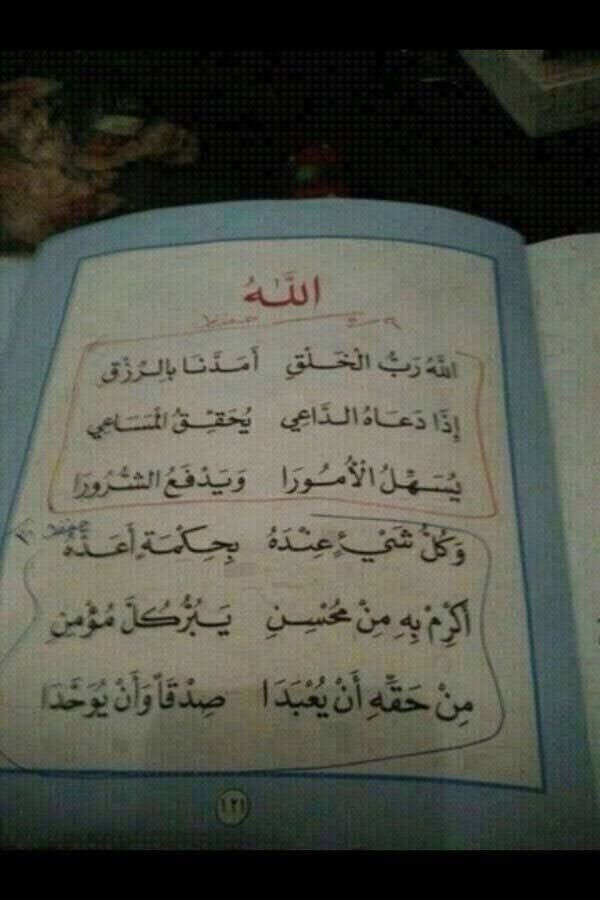 اللَّهُ
اللَّهُ رَبُّ الْخَلْقِ أَمَدَّنَا بِالرِّزْقِ
إِذَا دَعَاهُ الدَّاعِي يُحَقِّقُ الْمَسَاعِي
يُسَهِّلُ الْأُمُورَا وَيَدْفَعُ الشُّرُورَا
وَكُلُّ شَيْءٍ عِنْدَهُ بِحِكْمَةٍ أَعَدَّهُ
أَكْرِمْ بِهِ مِنْ مُحْسِنِ يَبُرُّ كُلَّ مُؤْمِنِ
مِنْ حَقِّهِ أَنْ يُعْبَدَا صِدْقاً وَأَنْ يُوَحَّدَا
١٢١